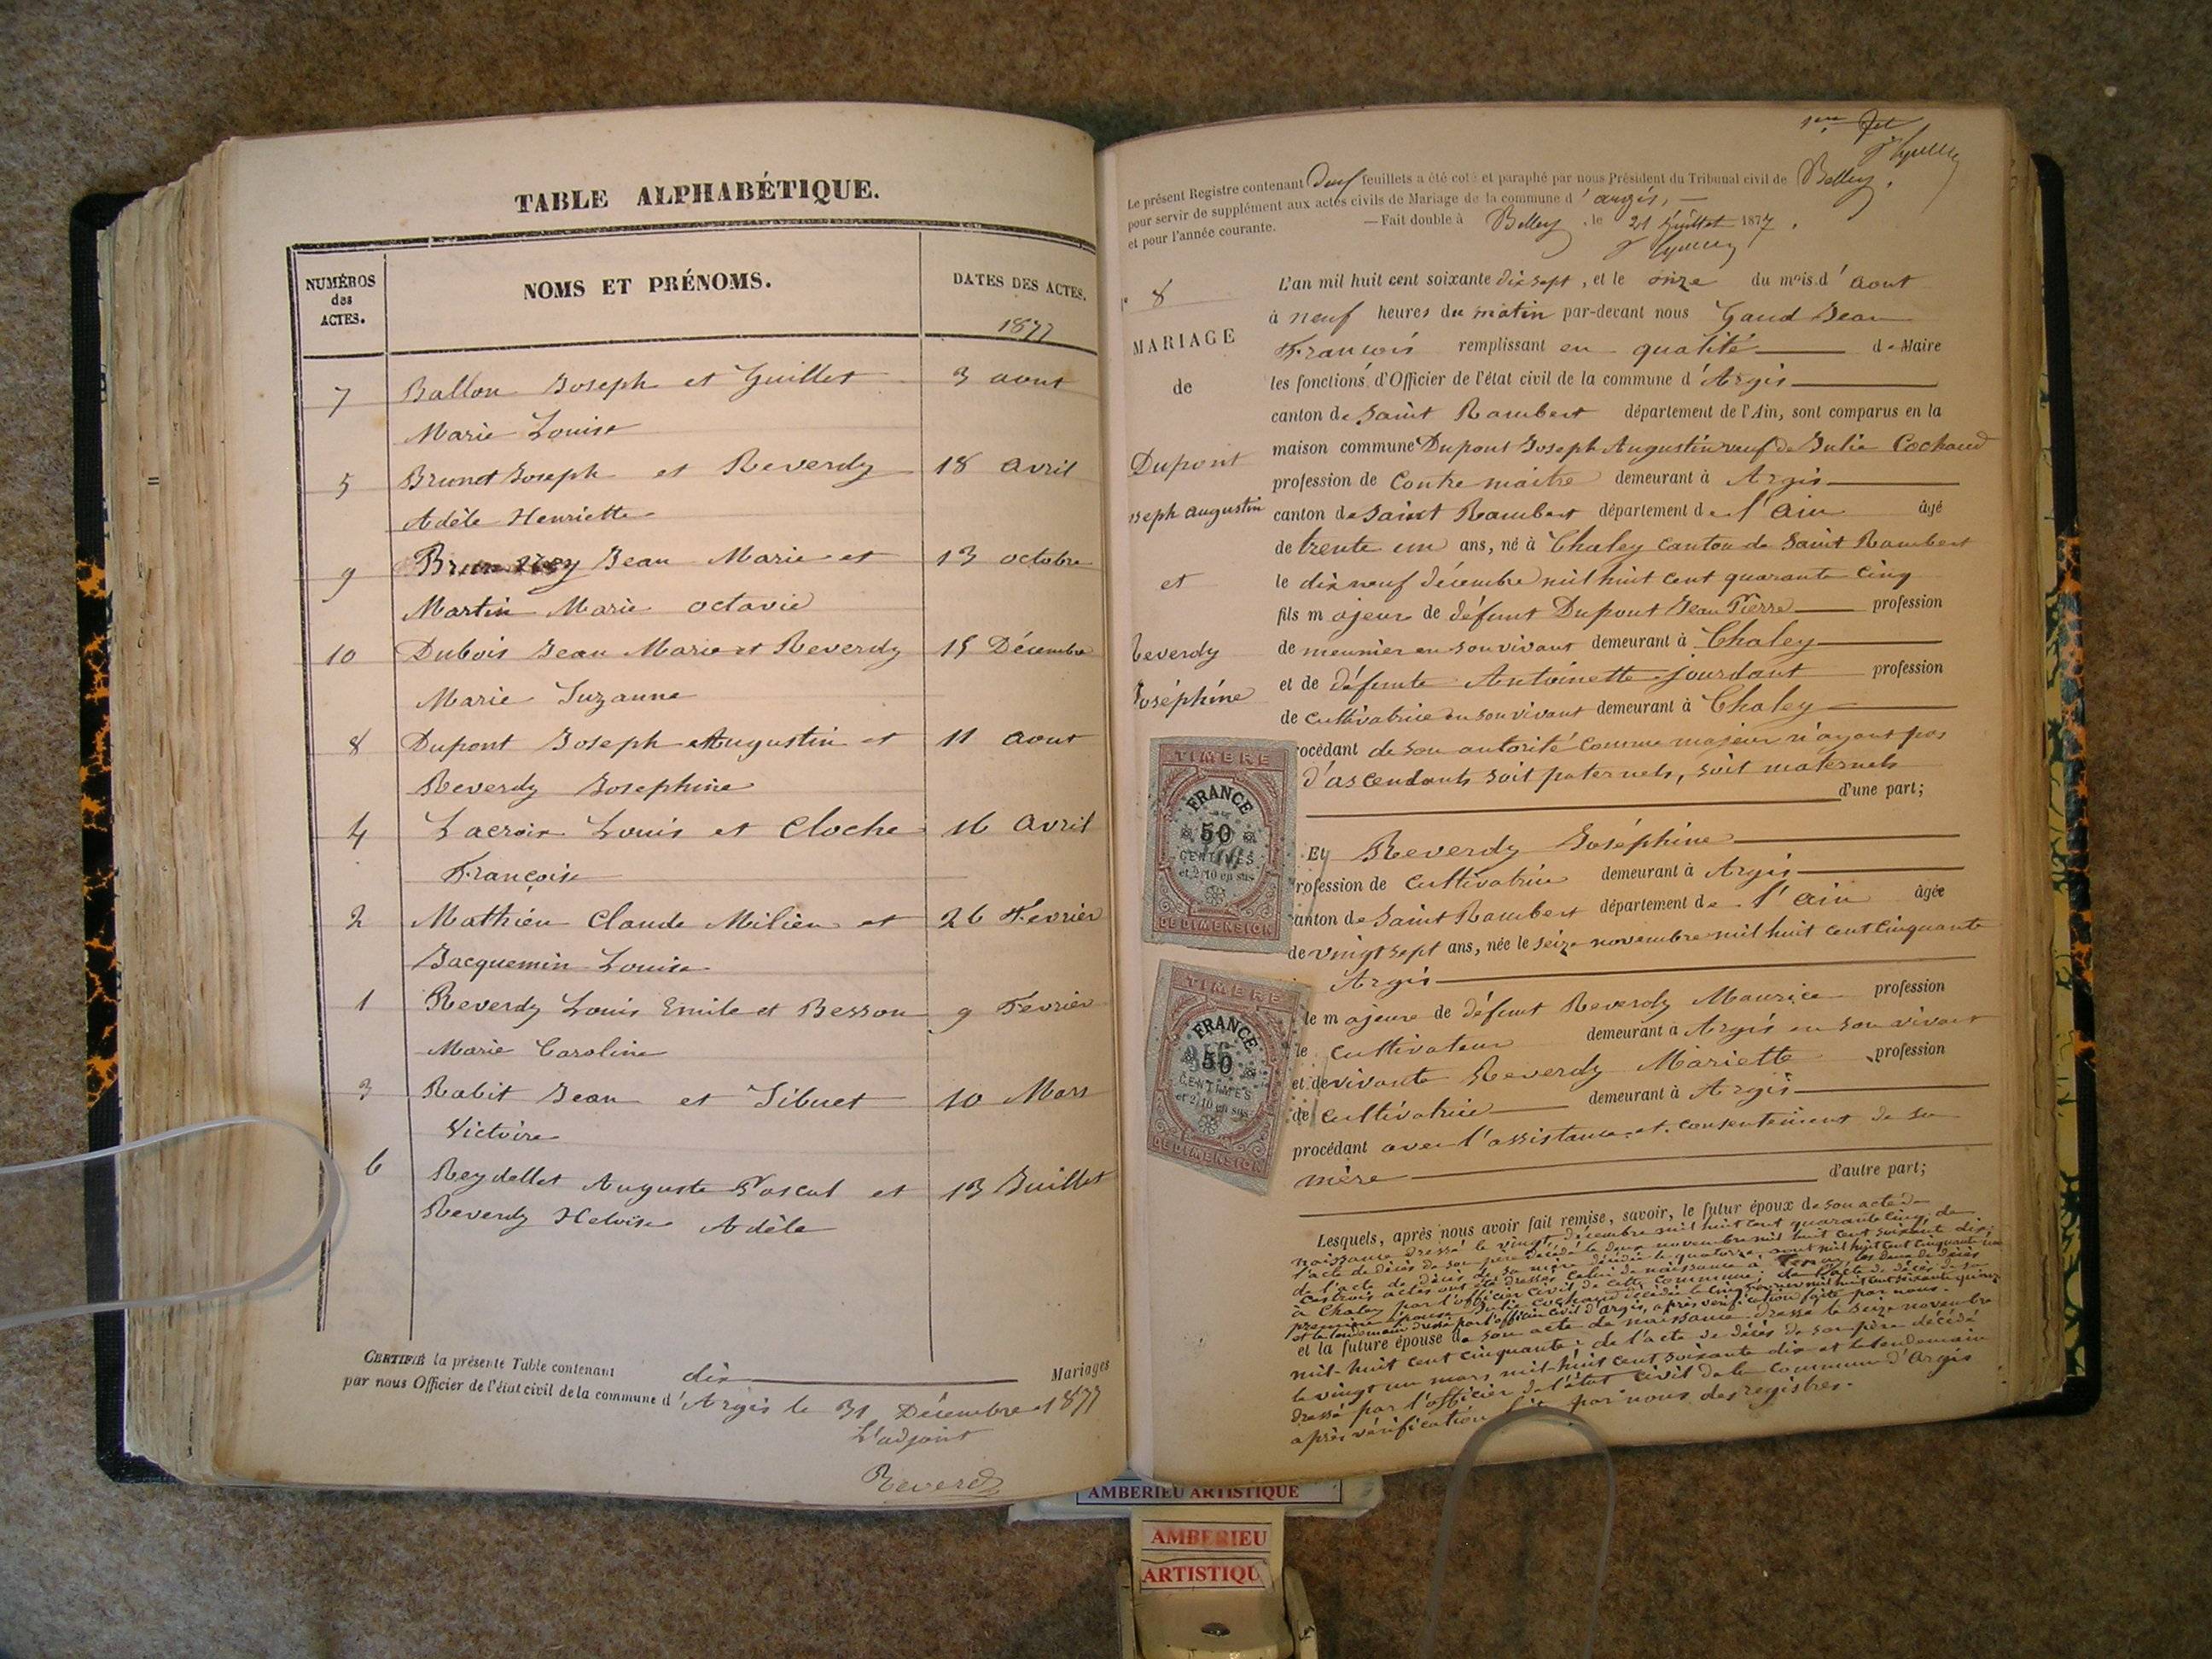 TABLE ALPHABÉTIQUE.
NUMÉROS des ACTES.
NOMS ET PRÉNOMS.
DATES DES ACTES.
1877
7 Ballon Joseph et Guillet 3 aout
Marie Louise
5 Brunet Joseph et Reverdy 18 avril
Adèle Henriette
9 Jean Marie et 13 octobre
Martin Marie octavie
10 Dubois Jean Marie et Reverdy 15 Décembre
Marie Suzanne
8 Dupont Joseph Augustin et 11 aout
Reverdy Josephine
4 Lacroix Louis et Cloche 16 Avril
Françoise
2 Mathieu Claude Milien et 26 Fevrier
Jacquemin Louise
1 Reverdy Louis Emile et Besson 9 Fevrier
Marie Caroline
3 Rabit Jean et Tibuet 10 Mars
Victoire
6 Reydellet Auguste Pascal et 13 Juillet
Reverdy Heloise Adèle
CERTIFIÉ la présente Table contenant dix Mariages
par nous Officier de l'état civil de la commune d'Argis le 31 Décembre 1877
L'adjoint
Reverdy
Le présent Registre contenant Deux feuillets a été coté et paraphé par nous Président du Tribunal civil de Belley,
pour servir de supplément aux actes civils de Mariage de la commune d'argis,
et pour l'année courante. — Fait double à Belley, le 21 Juillet 1877.
8
MARIAGE
de
Dupont
seph augustin
et
Reverdy
Joséphine
L'an mil huit cent soixante dix sept, et le onze du mois d'Aout
à neuf heures du matin par-devant nous Gaud Jean
François remplissant en qualité de Maire
les fonctions d'Officier de l'état civil de la commune d'Argis
canton de Saint Rambert département de l'Ain, sont comparus en la
maison commune Dupont Joseph Augustin veuf de Julie Cochand
profession de Contre maitre demeurant à Argis
canton de Saint Rambert département de l'Ain âgé
de trente un ans, né à Chaley canton de Saint Rambert
le dix neuf décembre mil huit cent quarante cinq
fils majeur de défunt Dupont Jean Pierre profession
de meunier en son vivant demeurant à Chaley
et de défunte Antoinette Jourdant profession
de cultivatrice en son vivant demeurant à Chaley
rocédant de son autorité comme majeur n'ayant pas
d'ascendants soit paternels, soit maternels
d'une part;
Et Reverdy Joséphine
rofession de cultivatrice demeurant à Argis
anton de Saint Rambert département de l'ain âgée
de vingt sept ans, née le seize novembre mil huit cent cinquante
Argis
le majeure de défunt Reverdy Maurice profession
le cultivateur demeurant à Argis en son vivant
et de vivante Reverdy Mariette profession
de cultivatrice demeurant à Argis
procédant avec l'assistance et consentement de sa
mère d'autre part;
Lesquels, après nous avoir fait remise, savoir, le futur époux de son acte de
naissance dressé le vingt décembre mil huit cent quarante cinq, de
l'acte de décès de son père décédé le deux novembre mil huit cent soixante dix;
de l'acte de décès de sa mère décédée le quatorze aout mil huit cent cinquante
ces trois actes ont été dressés celui de naissance à les deux de décès
à Chaley par l'officier civil de cette commune; de l'acte de décès de sa
première épouse Julie Cochand décédée le cinq mil huit cent soixante quinze
et le lendemain dressé par l'officier civil d'Argis, après vérification faite par nous.
et la future épouse de son acte de naissance dressé le seize novembre
mil-huit cent cinquante; de l'acte de décès de son père décédé
le vingt un mars mil-huit cent soixante dix et le lendemain
dressé par l'officier de l'état civil de la commune d'Argis
après vérification faite par nous des registres.
TIMBRE
FRANCE
50
CENTIMES
et 2/10 en sus
DE DIMENSION
TIMBRE
FRANCE
50
CENTIMES
et 2/10 en sus
DE DIMENSION
AMBERIEU ARTISTIQUE
AMBERIEU
ARTISTIQU